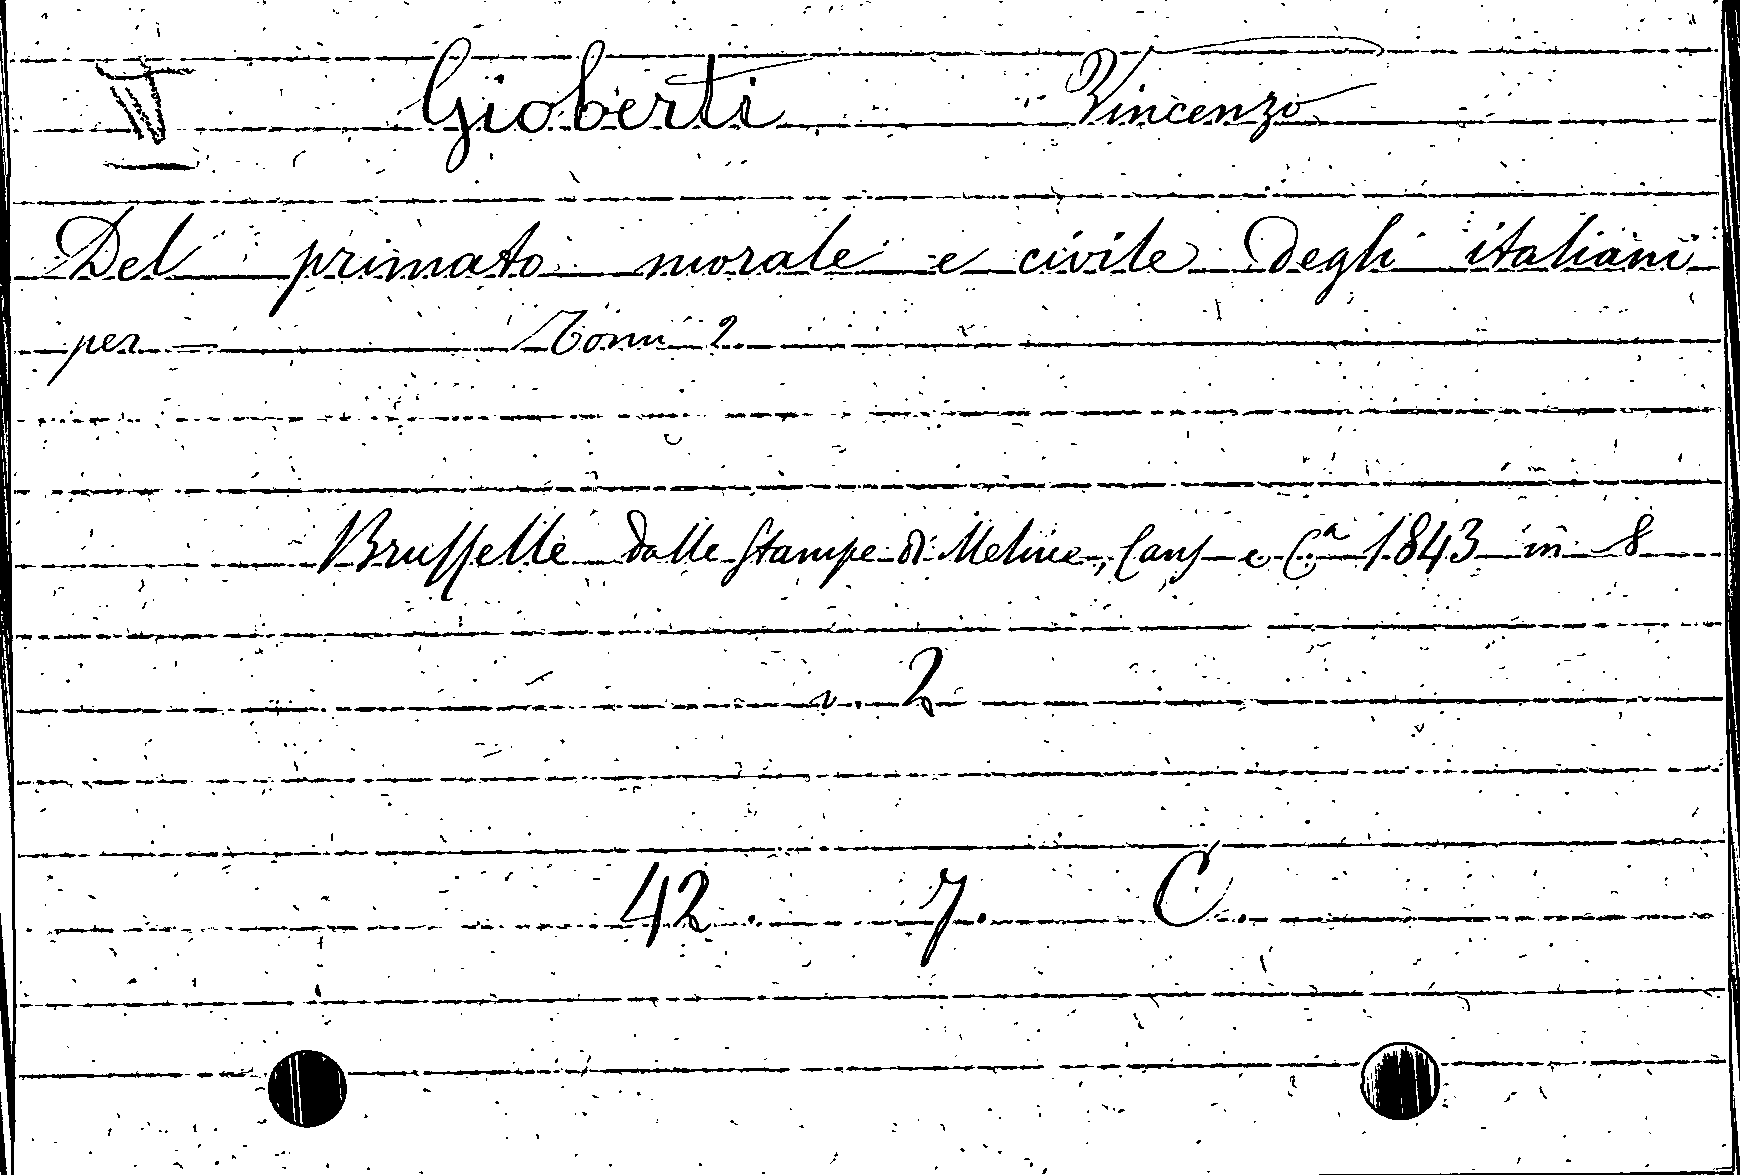 IV Gioberti Vincenzo
Del primato morale e civile degli italiani
per — Tomi 2.
Brusselle dalle stampe di Meline, Cans e C.ª 1843 in 8
v. 2
42. 7. C.